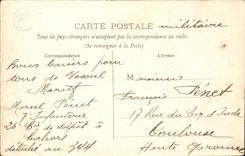 CARTE POSTALE militaire
Tous les pays étrangers n'acceptent pas la correspondance au recto.
(Se renseigner à la Poste)
Correspondance
Adresse
Bons baisers pour
tous de Vesoul
Marcel
Marcel Pinet
7e Infanterie
26e Cie de dépôt à
Cahors
détaché au 344
Monsieur
François Pinet
17 Rue du Coq d'Inde
Toulouse
Haute Garonne